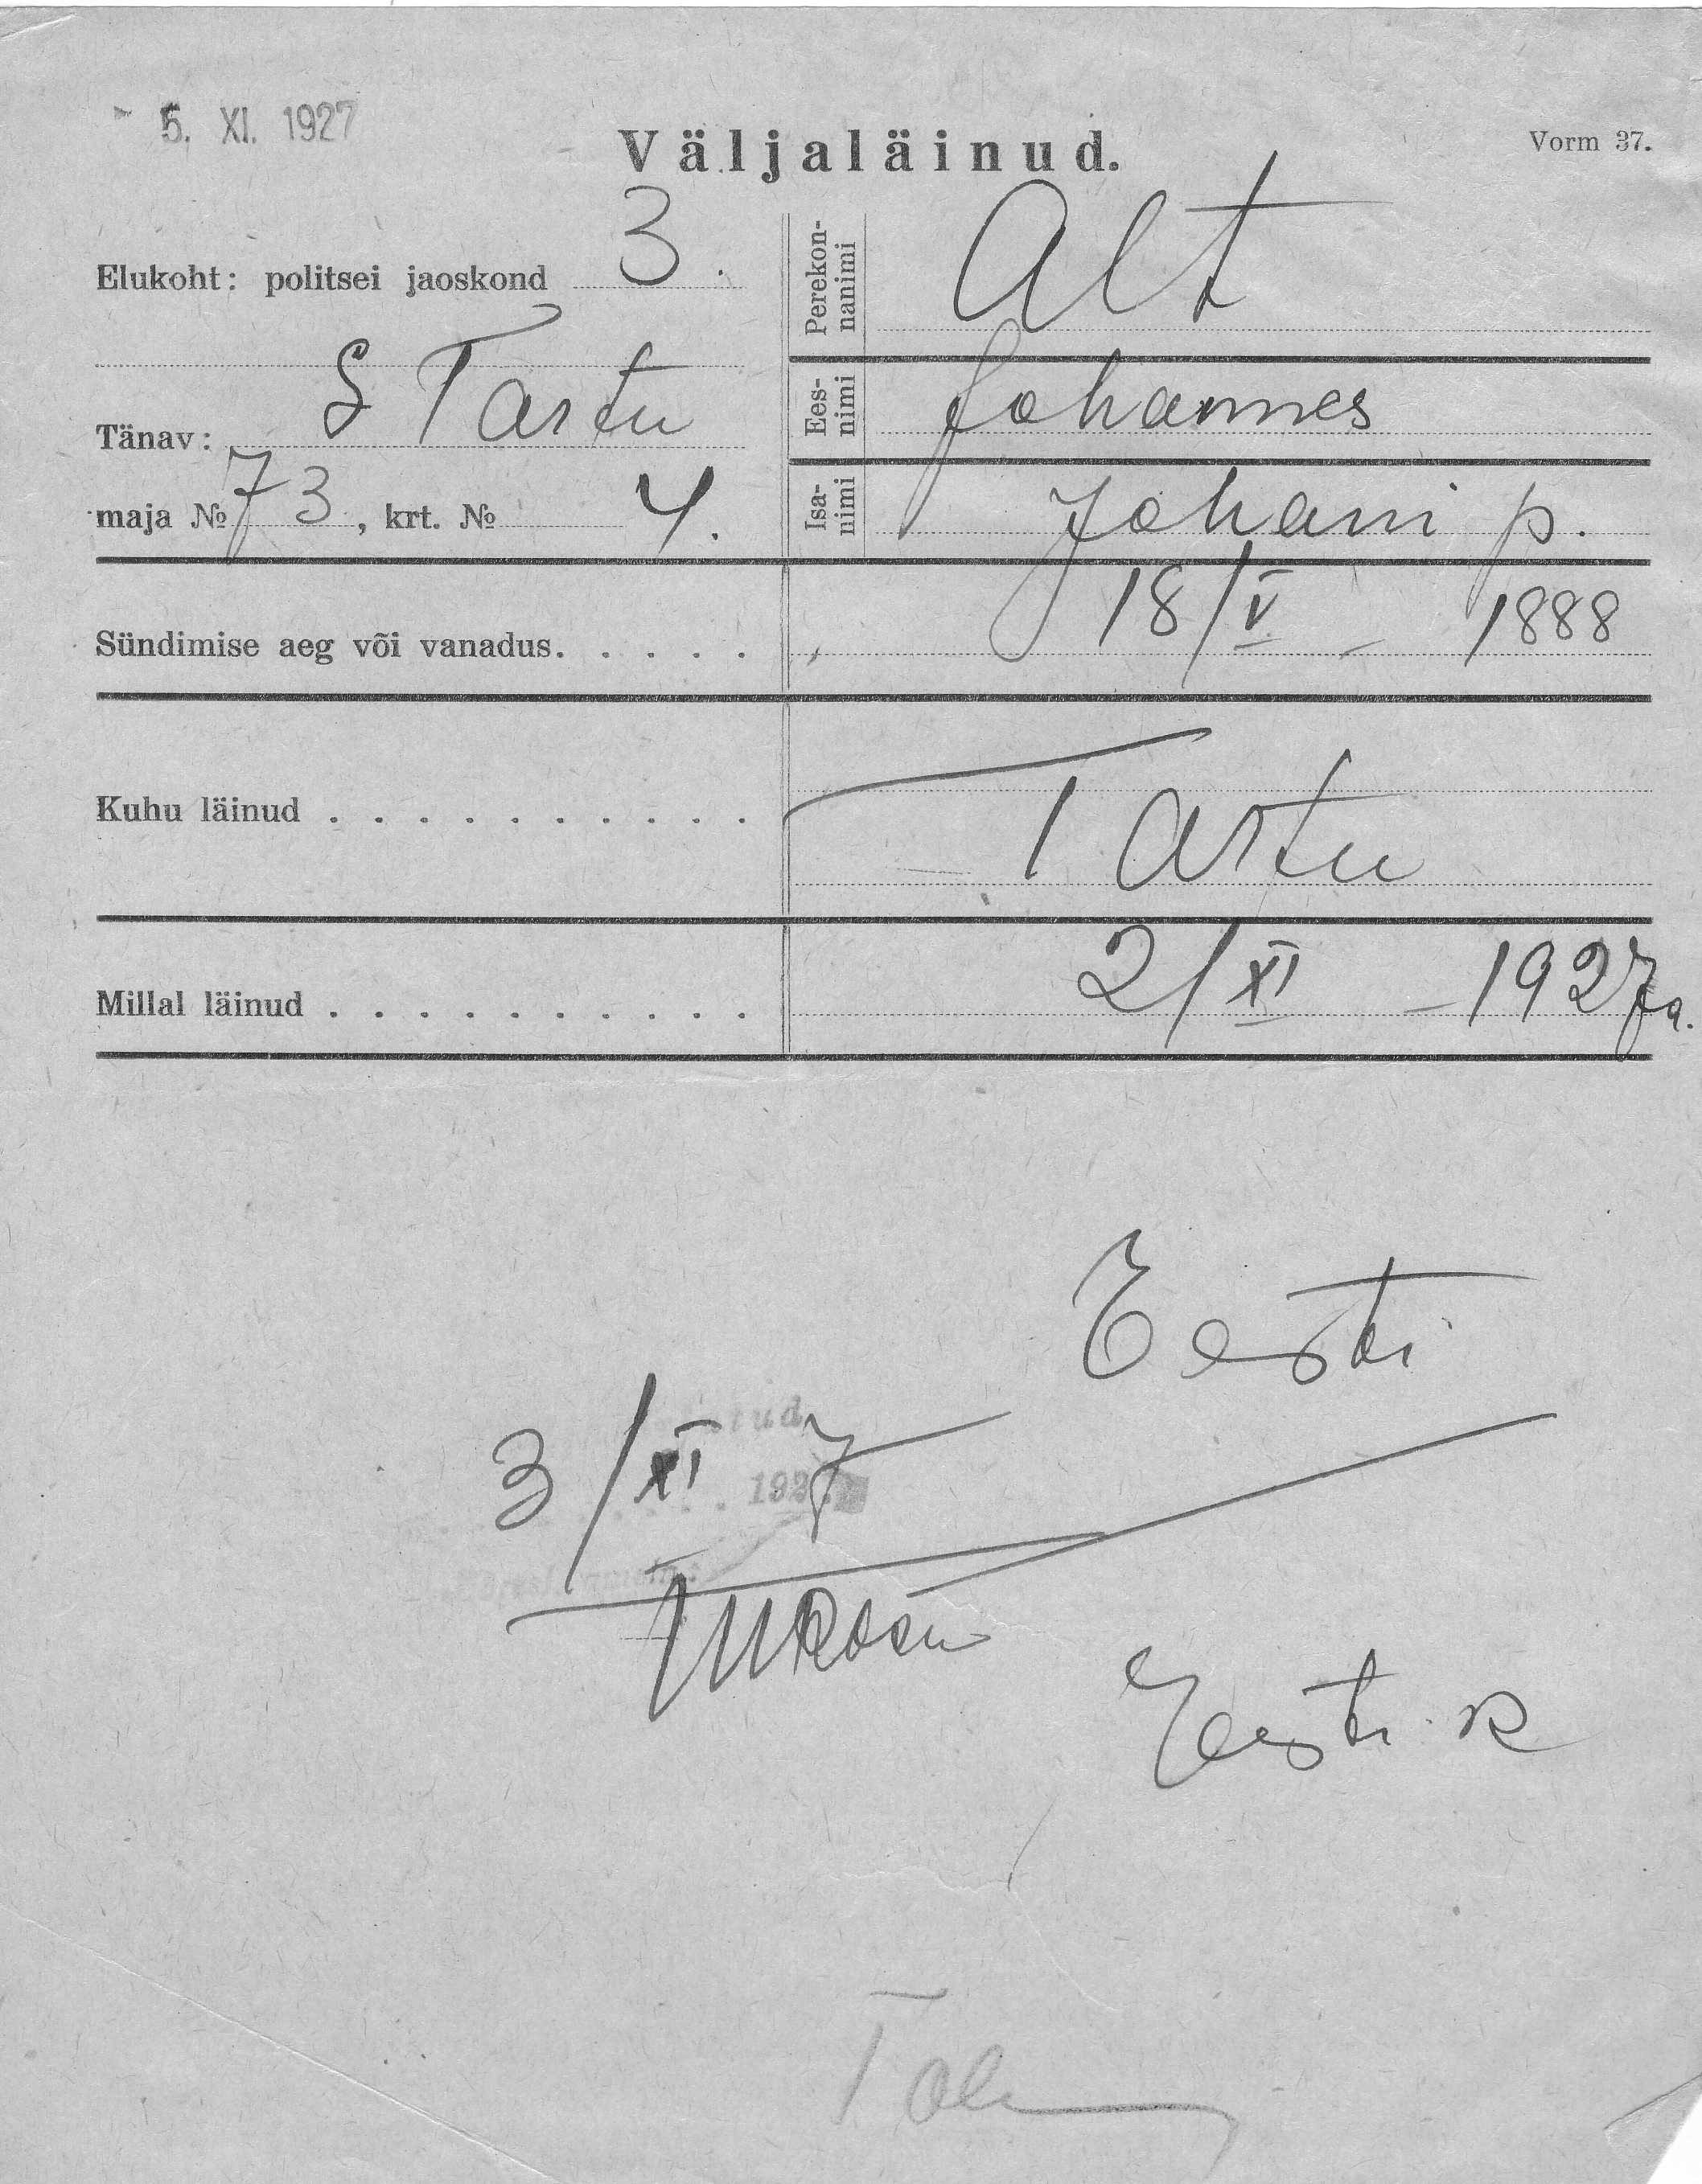 5. XI. 1927
Väljaläinud.
Vorm 37.
Elukoht: politsei jaoskond 3.
Tänav: S Tartu
maja № 73, krt. № 4.
Perekonnanimi Alt
Eesnimi Johannes
Isanimi Johani p.
Sündimise aeg või vanadus. 18/V - 1888
Kuhu läinud Tartu
Millal läinud 2/XI - 1927 a.
Eesti
3/XI 7
192
Eesti. k